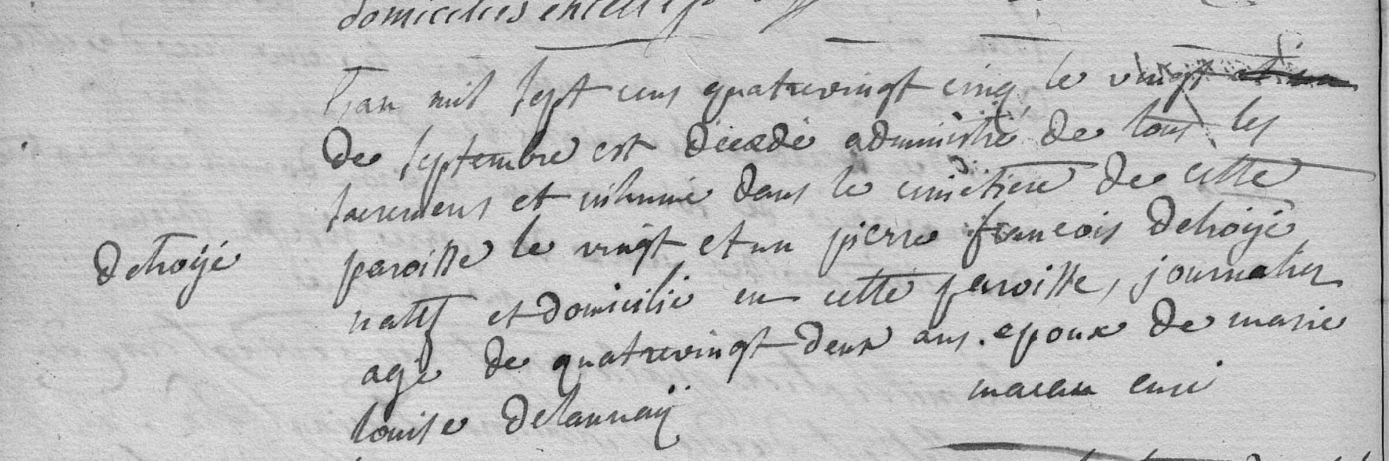 domiciliés en cette
L'an mil sept cens quatrevingt cinq le vingt
de septembre est décédé administré de tous les
sacremens et inhumé dans le cimetiere de cette
paroisse le vingt et un pierre francois Detroÿé
Detroÿé
natif et domicilié en cette paroisse, journalier
agé de quatrevingt deux ans. epoux de marie
louise Delaunaÿ
macau curé